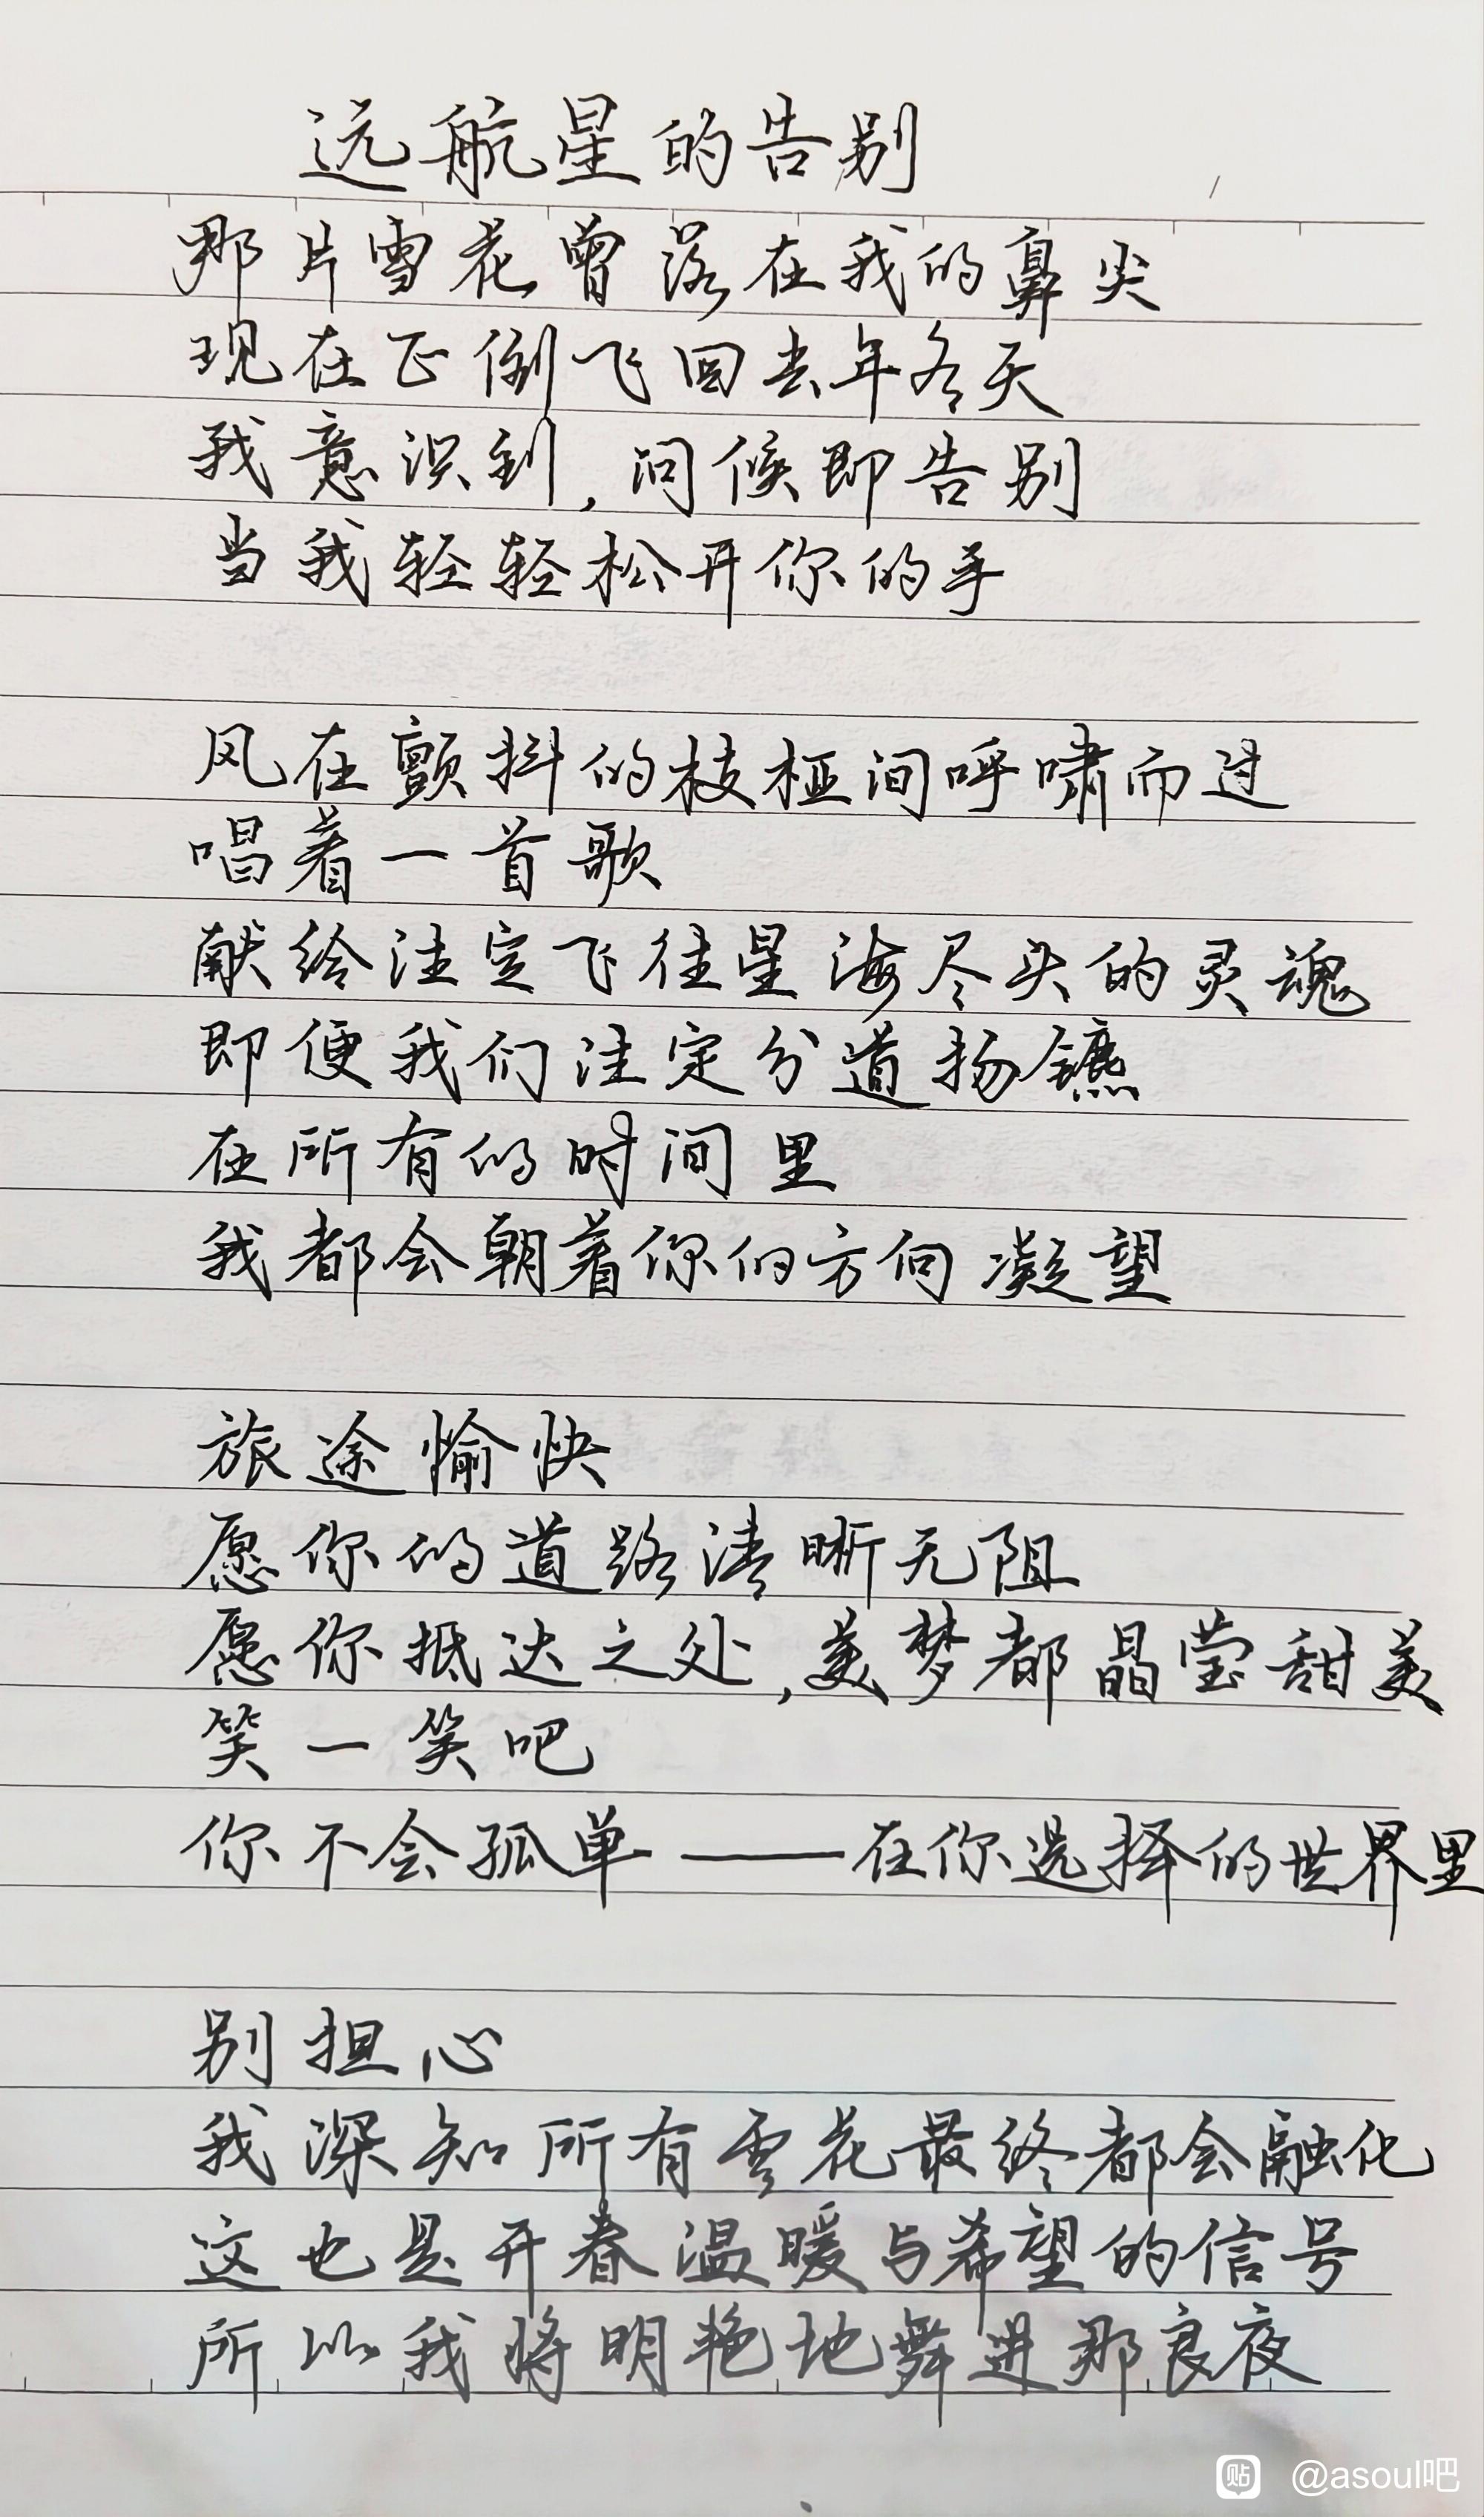 远航星的告别
那片雪花曾落在我的鼻尖
现在正倒飞回去年冬天
我意识到,问候即告别
当我轻轻松开你的手
风在颤抖的枝桠间呼啸而过
唱着一首歌
献给注定飞往星海尽头的灵魂
即便我们注定分道扬镳
在所有的时间里
我都会朝着你的方向凝望
旅途愉快
愿你的道路清晰无阻
愿你抵达之处,美梦都晶莹甜美
笑一笑吧
你不会孤单——在你选择的世界里
别担心
我深知所有雪花最终都会融化
这也是开春温暖与希望的信号
所以我将明艳地舞进那良夜
贴 @asoul吧